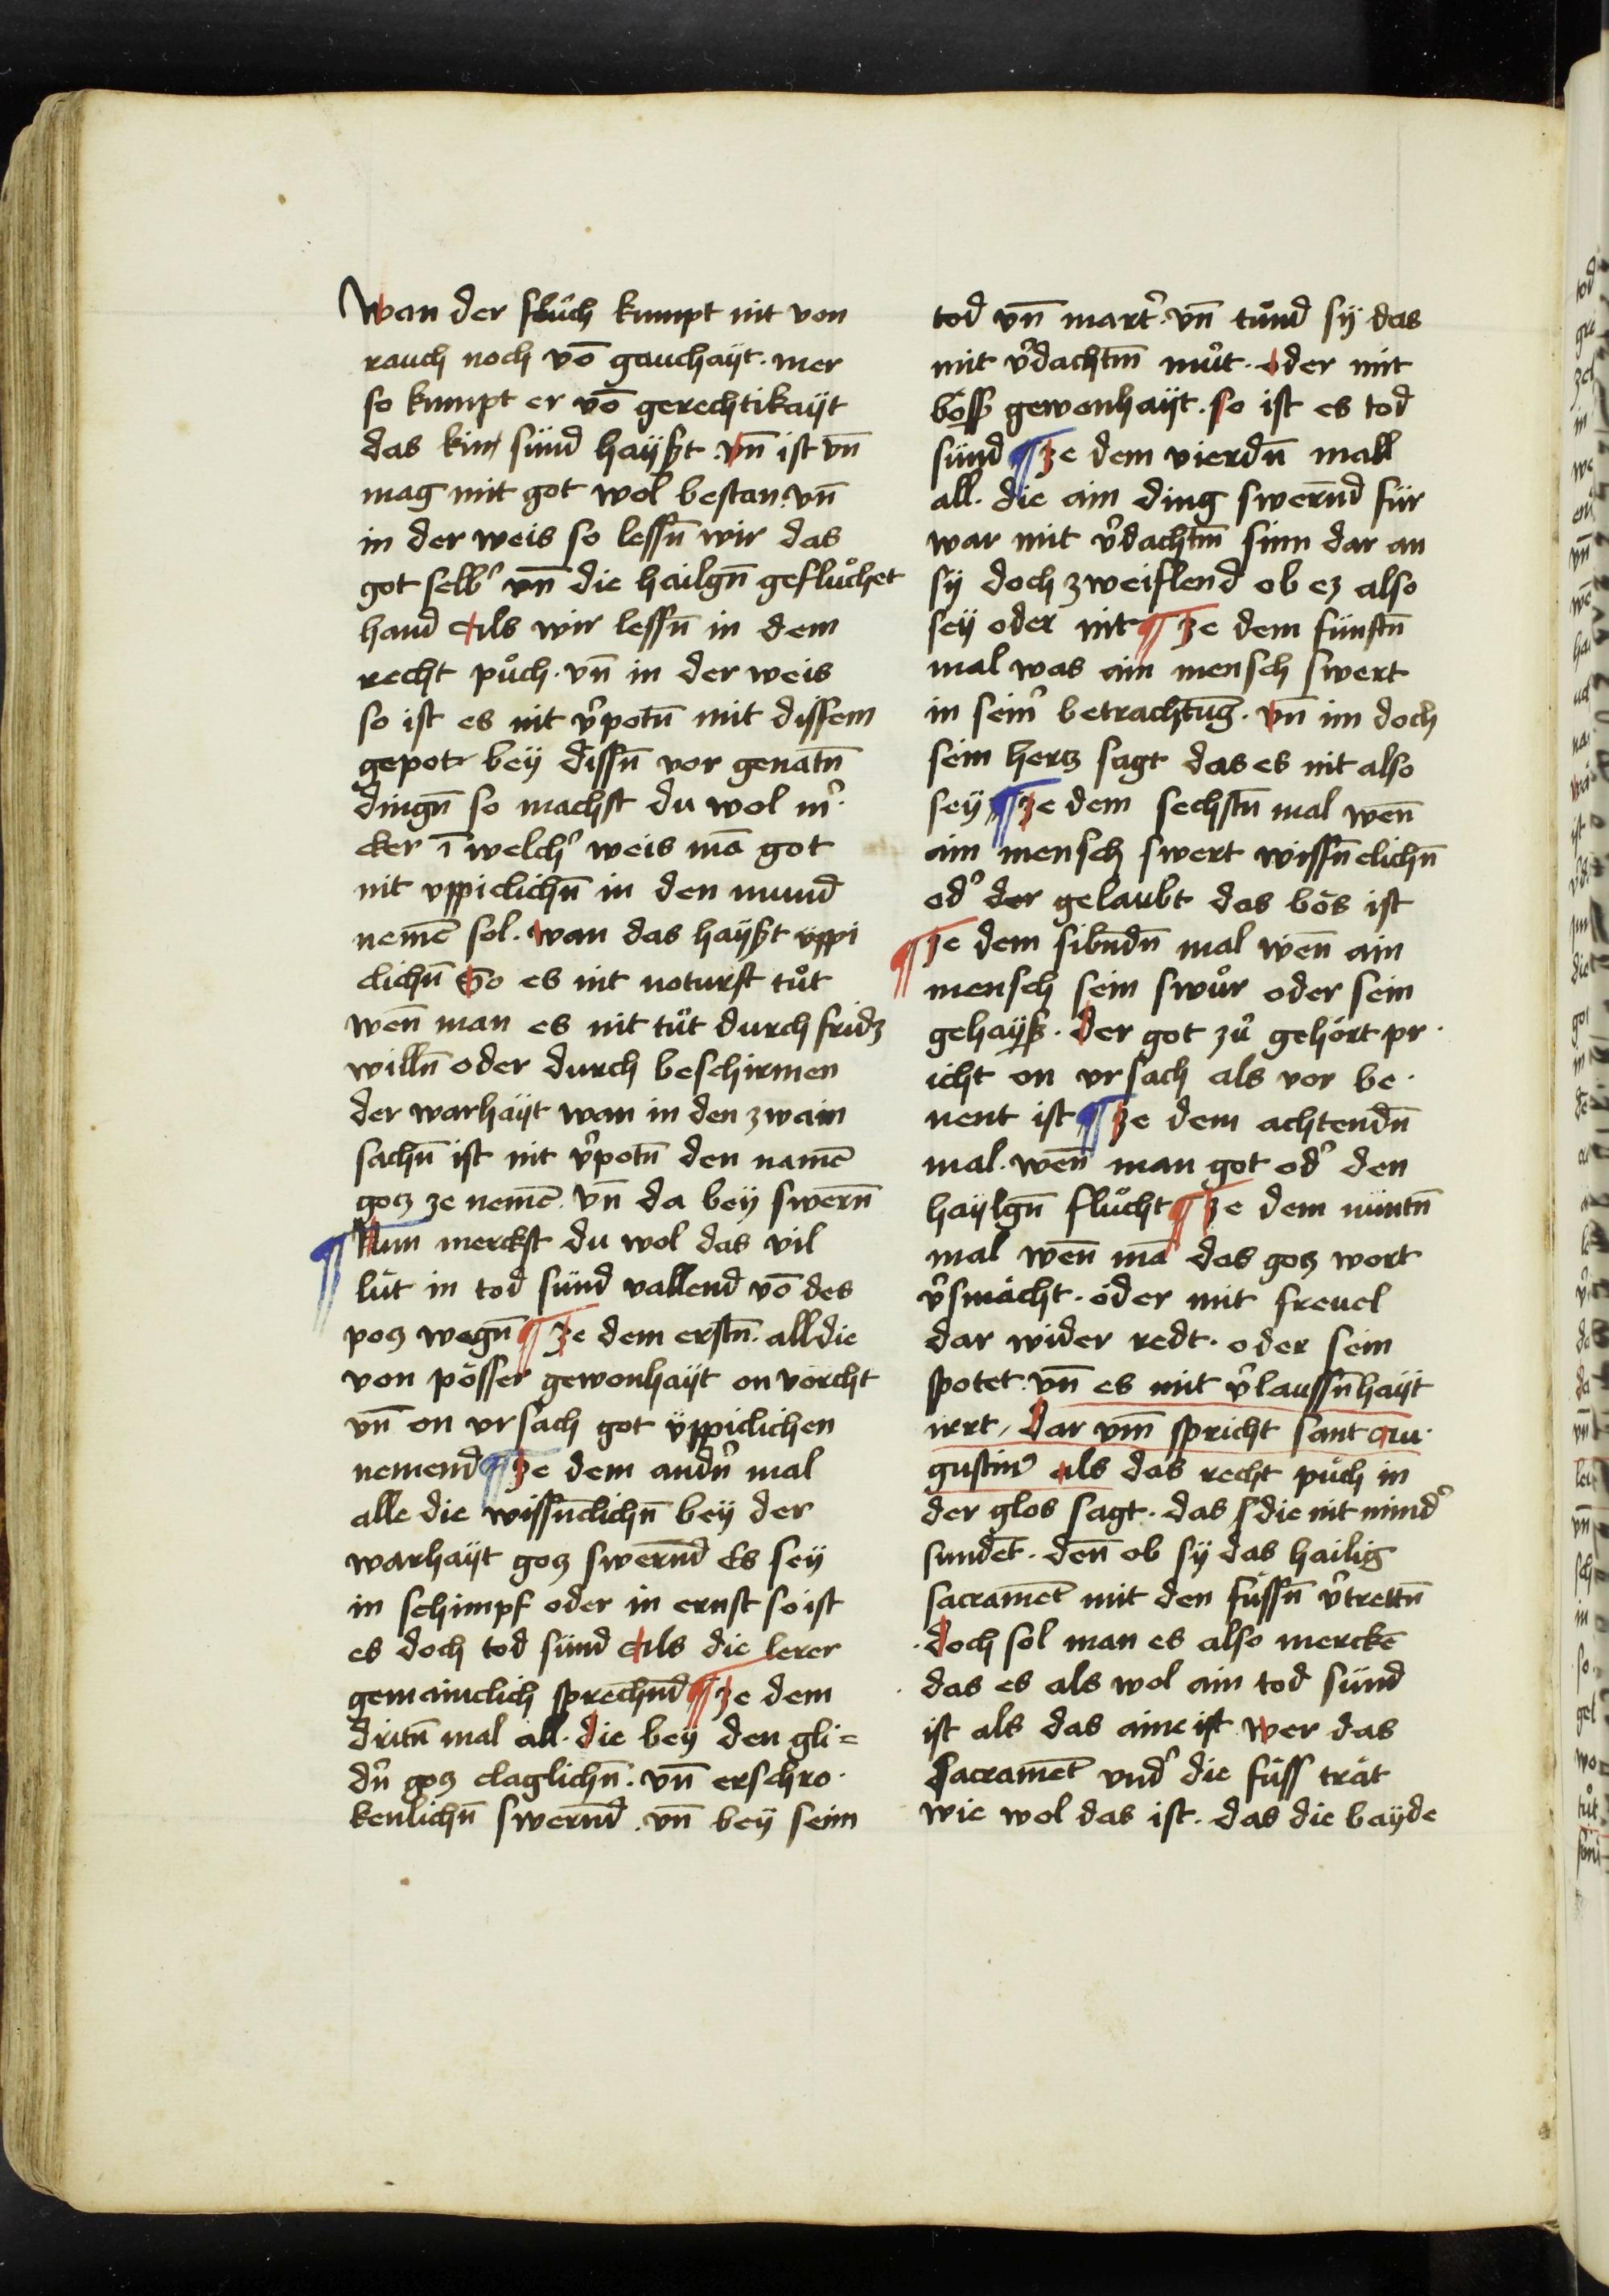 Wan der fluͦch kumpt nit von
rauch noch vō gauchaÿt · mer
so kumpt er vō gerechtikaÿt
das kin sünd haÿßt · vn̄ ist vn̄
mag mit got wol bestan · vn̄
in der weis so lessn̄ wir das
got selb᾽ vn̄ die hailgn̄ gefluͦchet
hand Als wir lessn̄ in dem
recht puͦch · vn̄ in der weis
so ist es nit v᾽potn̄ mit dissem
gepot bey dissn̄ vor genātn̄
dingn̄ so machst du wol m᾽·
cker ī welch᾽ weis mā got
nit vppiclichn̄ in den mund
nemē sol · wan das haÿßt üppi
clichn̄ So es nit noturft tuͦt
wen̄ man es nit tuͦt durch fridz
willn̄ oder durch beschirmen
der warhaÿt wan in den zwain
sachn̄ ist nit v᾽potn̄ den namē
gotz ze nemē · vn̄ da beÿ swern̄
¶ Nun merckst du wol das vil
lüt in tod sünd vallend vō des
potz wegn̄ ¶ Ze dem erstn̄ · all die
von pösser gewonhaÿt on vorcht
vn̄ on vrsach got üppiclichen
nemend ¶ Ze dem andn᾽ mal
alle die wissn̄clichn̄ beÿ der
warhaÿt gotz swernd̄ Es seÿ
in schimpf oder in ernst so ist
es doch tod sünd Als die lerer
gemainclich sprechnd̄ ¶ Ze dem
dritn̄ mal all · die beÿ den gli=
dn᾽ gotz claglichn̄ · vn̄ erschro·
kenlichn̄ swernd̄ · vn̄ beÿ seim
tod vn̄ mart᾽ · vn̄ tuͦnd sÿ das
mit v᾽dachtm̄ muͦt · oder mit
böss gewonhaÿt · so ist es tod
sünd ¶ Ze dem vierdn̄ mall
all · die ain ding swernd̄ für
war mit v᾽dachtm̄ sinn dar an
sÿ doch zweiflend ob ez also
seÿ oder nit ¶ Ze dem fünftn̄
mal was ain mensch swert
in sein᾽ betrachtūg · vn̄ im doch
sein hertz sagt das es nit also
seÿ ¶ Ze dem sechstn̄ mal wen̄
ain mensch swert wissn̄clichn̄
od᾽ der gelaubt das bös ist
¶ Ze dem sibndn̄ mal wen̄ ain
mensch sein swuͦr oder sein
gehaÿß · der got zuͦ gehört pr·
icht on vrsach als vor be·
nent ist ¶ Ze dem achtendn̄
mal · wen̄ man got od᾽ den
haÿlgn̄ fluͦcht ¶ Ze dem nüntn̄
mal wen̄ mā das gotz wort
v᾽smächt · oder mit freuel
dar wider redt · oder sein
spotet · vn̄ es mit v᾽laussn̄haÿt
irrt / Dar vm̄ spricht sant Au·
gustin᾽ Als das recht puͦch in
der glos sagt · das die nit mind᾽
sundēt · den̄ ob sÿ das hailig
sacramēt mit den füssn̄ v᾽trettn̄
· Doch sol man es also merckē
das es als wol ain tod sünd
ist als das aine ist · wer das
Sacramēt vnd᾽ die füss trät
wie wol das ist · das die baÿde